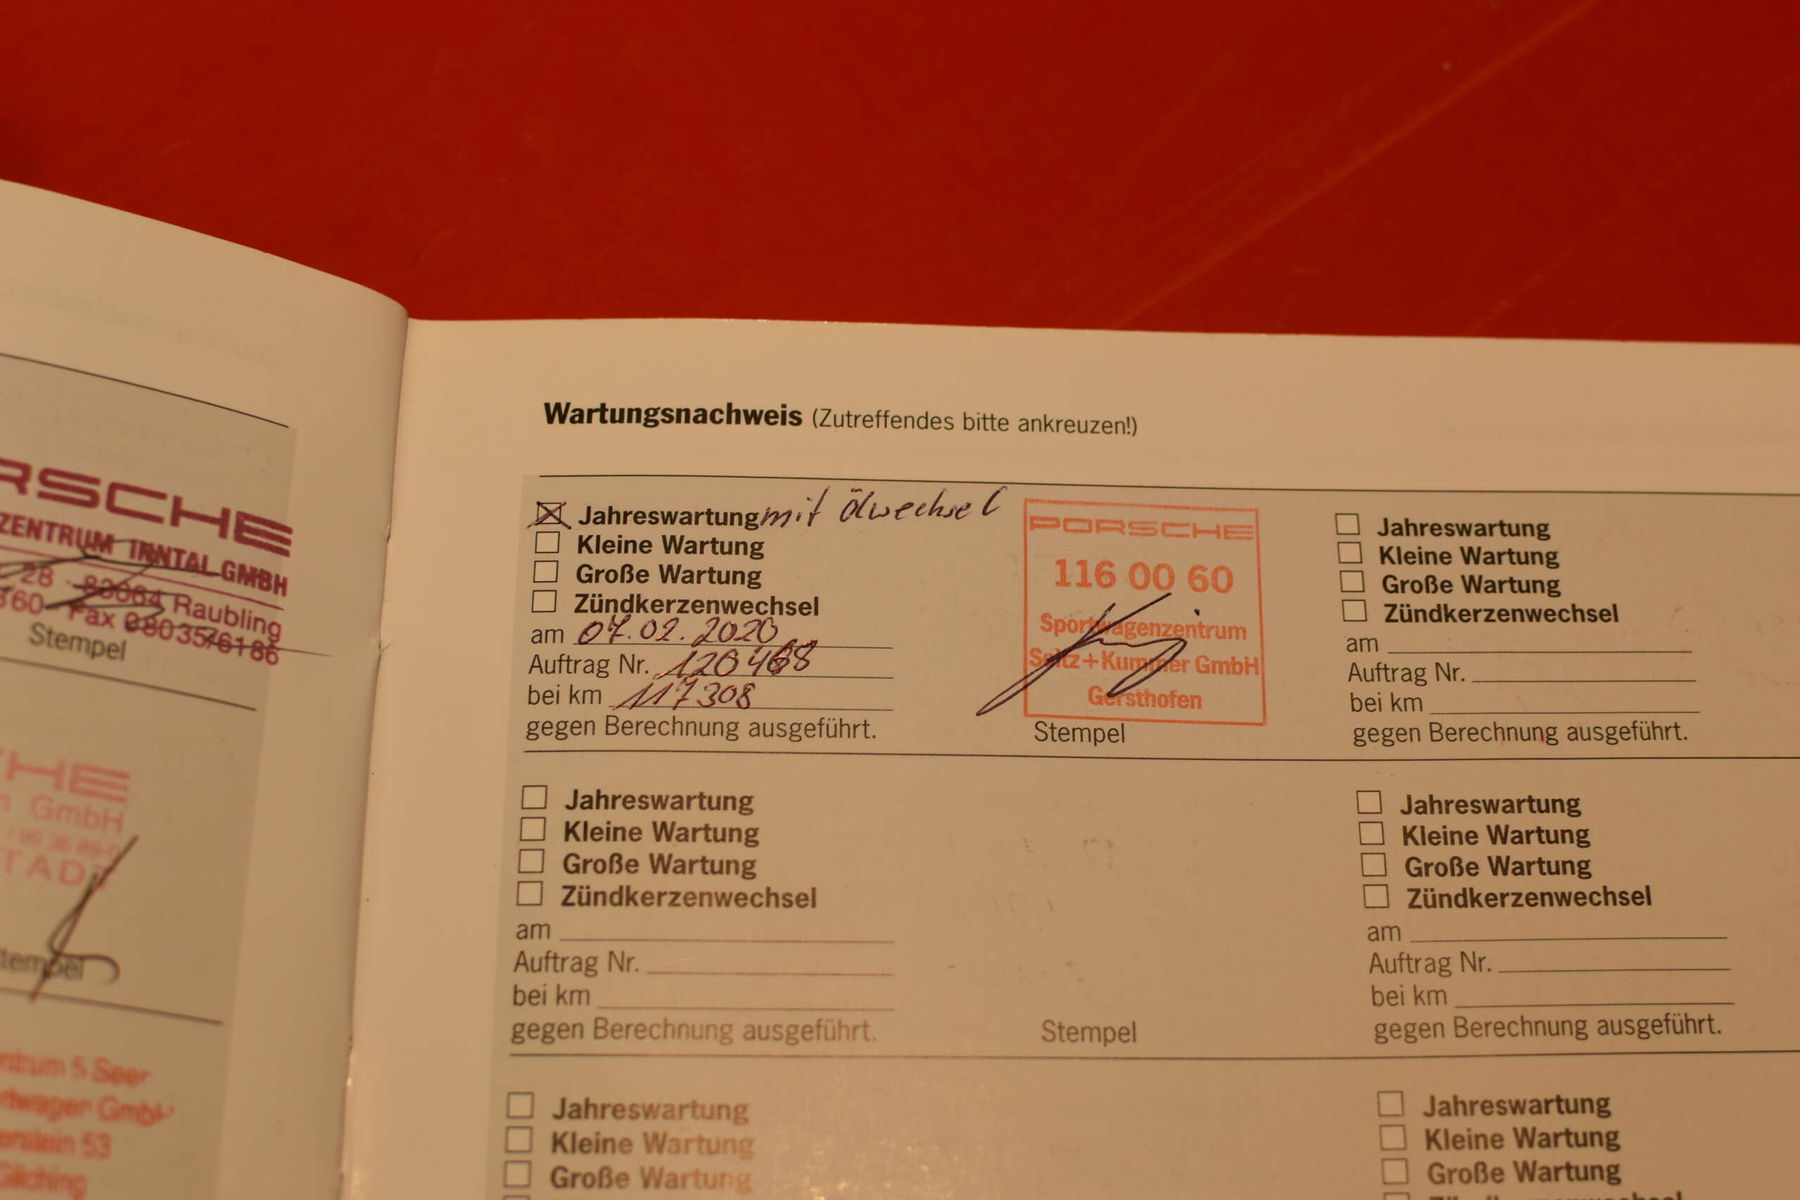 RSCHE
ZENTRUM INNTAL GMBH
28 83064 Raubling
360 Fax 08035/6186
Stempel
CHE
GmbH
STADT
Stempel
ntrum 5 Seen
rtwagen GmbH
erstein 53
Gilching
Wartungsnachweis (Zutreffendes bitte ankreuzen!)
Jahreswartung mit Ölwechsel
Kleine Wartung
Große Wartung
Zündkerzenwechsel
am 07.02.2020
Auftrag Nr. 120468
bei km 117308
gegen Berechnung ausgeführt.
PORSCHE
116 00 60
Sportwagenzentrum
Seitz+Kummer GmbH
Gersthofen
Stempel
Jahreswartung
Kleine Wartung
Große Wartung
Zündkerzenwechsel
am
Auftrag Nr.
bei km
gegen Berechnung ausgeführt.
Jahreswartung
Kleine Wartung
Große Wartung
Zündkerzenwechsel
am
Auftrag Nr.
bei km
gegen Berechnung ausgeführt.
Stempel
Jahreswartung
Kleine Wartung
Große Wartung
Zündkerzenwechsel
am
Auftrag Nr.
bei km
gegen Berechnung ausgeführt.
Jahreswartung
Kleine Wartung
Große Wartung
Jahreswartung
Kleine Wartung
Große Wartung